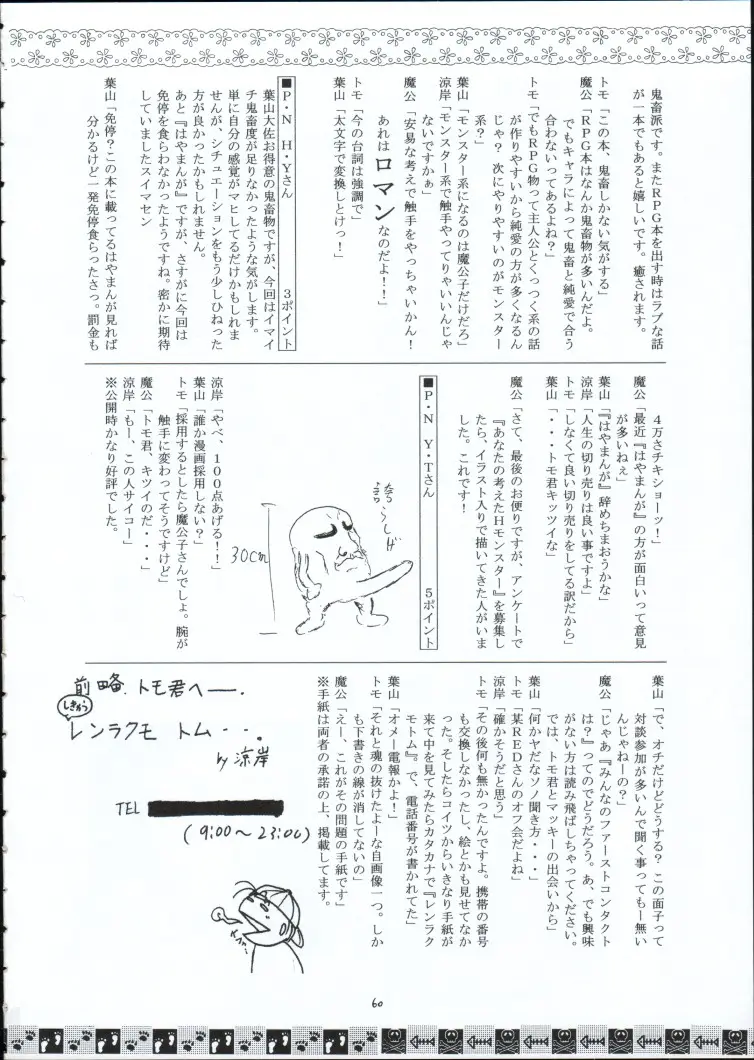 鬼畜派です。またＲＰＧ本を出す時はラブな話
が一本でもあると嬉しいです。癒されます。
トモ「この本、鬼畜しかない気がする」
魔公「ＲＰＧ本はなんか鬼畜物が多いんだよ。
でもキャラによって鬼畜と純愛で合う
合わないってあるよね？」
トモ「でもＲＰＧ物って主人公とくっつく系の話
が作りやすいから純愛の方が多くなるん
じゃ？　次にやりやすいのがモンスター
系？」
葉山「モンスター系になるのは魔公子だけだろ」
涼岸「モンスター系で触手やってりゃいいんじゃ
ないですかぁ」
魔公「安易な考えで触手をやっちゃいかん！
あれはロマンなのだよ！！」
トモ「今の台詞は強調で」
葉山「太文字で変換しとけっ！」
■Ｐ・Ｎ　Ｈ・Ｙさん　３ポイント
葉山大佐お得意の鬼畜物ですが、今回はイマイ
チ鬼畜度が足りなかったような気がします。
単に自分の感覚がマヒしてるだけかもしれま
せんが、シチュエーションをもう少しひねった
方が良かったかもしれません。
あと『はやまんが』ですが、さすがに今回は
免停を食らわなかったようですね。密かに期待
していましたスイマセン
葉山「免停？この本に載ってるはやまんが見れば
分かるけど一発免停食らったさっ。罰金も
４万さチキショーッ！」
魔公「最近『はやまんが』の方が面白いって意見
が多いねぇ」
葉山「『はやまんが』辞めちまおうかな」
涼岸「人生の切り売りは良い事ですよ」
トモ「しなくて良い切り売りをしてる訳だから」
葉山「・・・トモ君キッツイな」
魔公「さて、最後のお便りですが、アンケートで
『あなたの考えたＨモンスター』を募集し
たら、イラスト入りで描いてきた人がいま
した。これです！
■Ｐ・Ｎ　Ｙ・Ｔさん　５ポイント
誇らしげ
30cm
涼岸「やべ、１００点あげる！！」
葉山「誰か漫画採用しない？」
トモ「採用するとしたら魔公子さんでしょ。腕が
触手に変わってそうですけど」
魔公「トモ君、キツイのだ・・・」
涼岸「もー、この人サイコー」
※公開時かなり好評でした。
葉山「で、オチだけどどうする？　この面子って
対談参加が多いんで聞く事ってもー無い
んじゃねーの？」
魔公「じゃあ『みんなのファーストコンタクト
は？』ってのでどうだろう。あ、でも興味
がない方は読み飛ばしちゃってください。
では、トモ君とマッキーの出会いから」
葉山「何かヤだなソノ聞き方・・・」
トモ「某ＲＥＤさんのオフ会だよね」
涼岸「確かそうだと思う」
トモ「その後何も無かったんですよ。携帯の番号
も交換しなかったし、絵とかも見せてなか
った。そしたらコイツからいきなり手紙が
来て中を見てみたらカタカナで『レンラク
モトム』。で、電話番号が書かれてた」
葉山「オメー電報かよ！」
トモ「それと魂の抜けたよーな自画像一つ。しか
も下書きの線が消してないの」
魔公「えー、これがその問題の手紙です」
※手紙は両者の承諾の上、掲載してます。
前略、トモ君へ――.
しきゅう
レンラクモ トム・・・。
by 涼岸
TEL
(9:00～23:00)
60